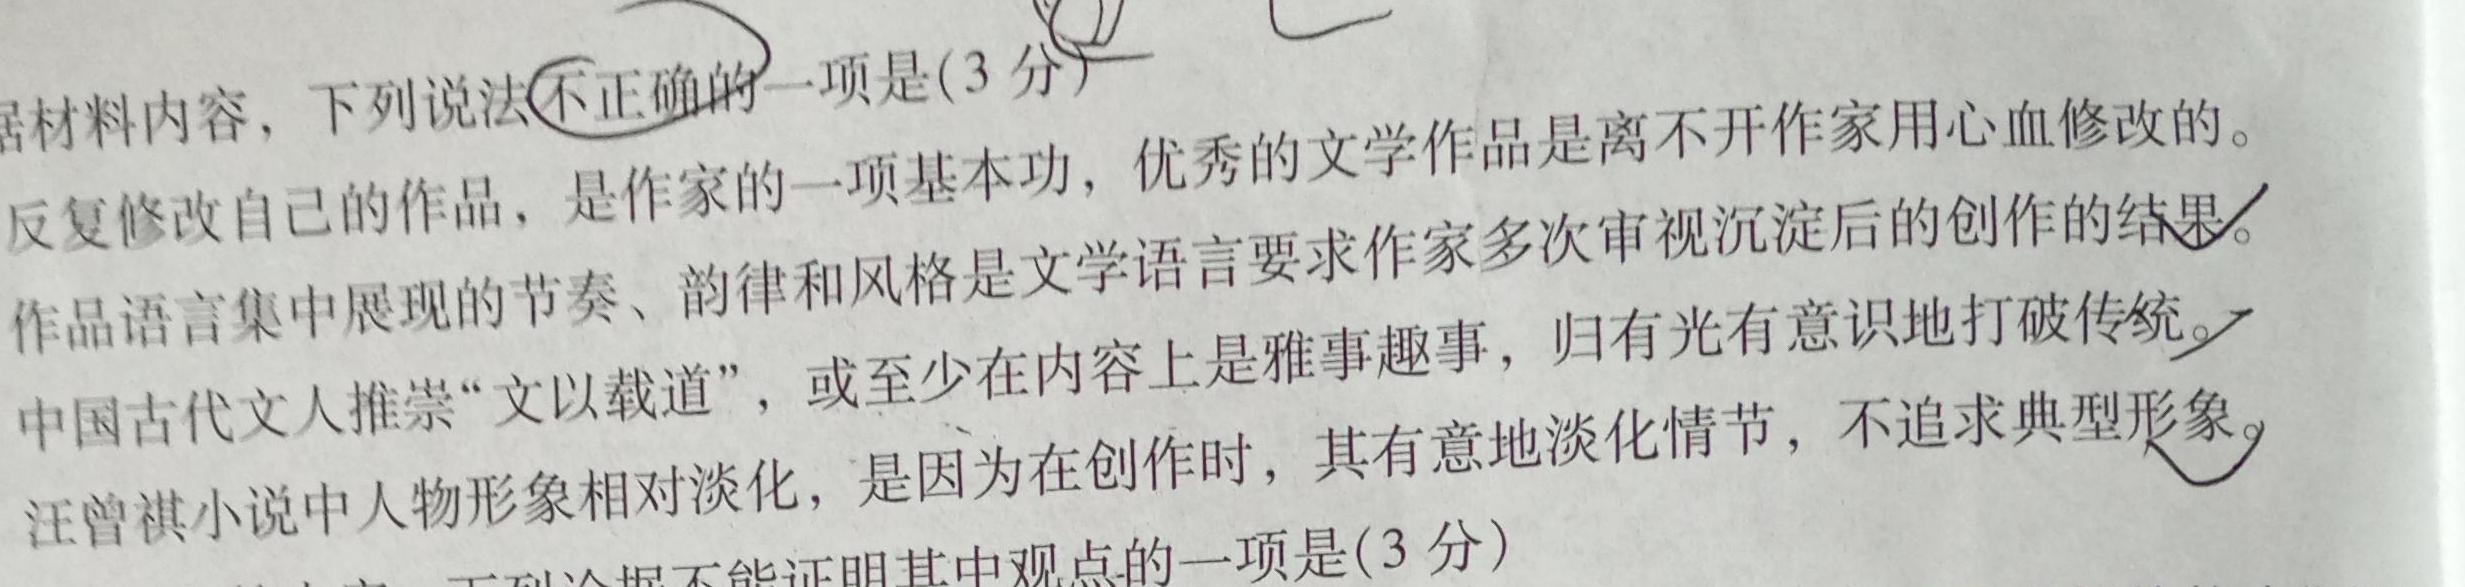 居材料内容，下列说法不正确的一项是(3 分)
反复修改自己的作品，是作家的一项基本功，优秀的文学作品是离不开作家用心血修改的。
作品语言集中展现的节奏、韵律和风格是文学语言要求作家多次审视沉淀后的创作的结果。
中国古代文人推崇“文以载道”，或至少在内容上是雅事趣事，归有光有意识地打破传统。
汪曾祺小说中人物形象相对淡化，是因为在创作时，其有意地淡化情节，不追求典型形象。
下列论据不能证明其中观点的一项是(3 分)